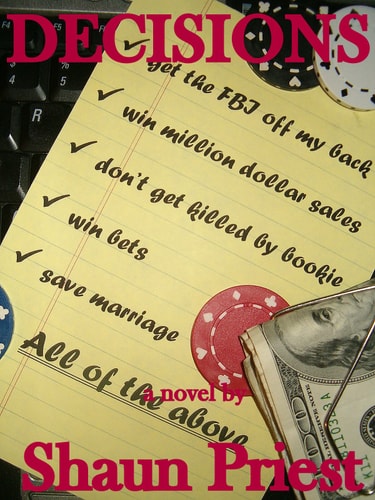 DECISIONS
get the FBI off my back
win million dollar sales
don't get killed by bookie
win bets
save marriage
All of the above
a novel by
Shaun Priest
F4
5
%
R